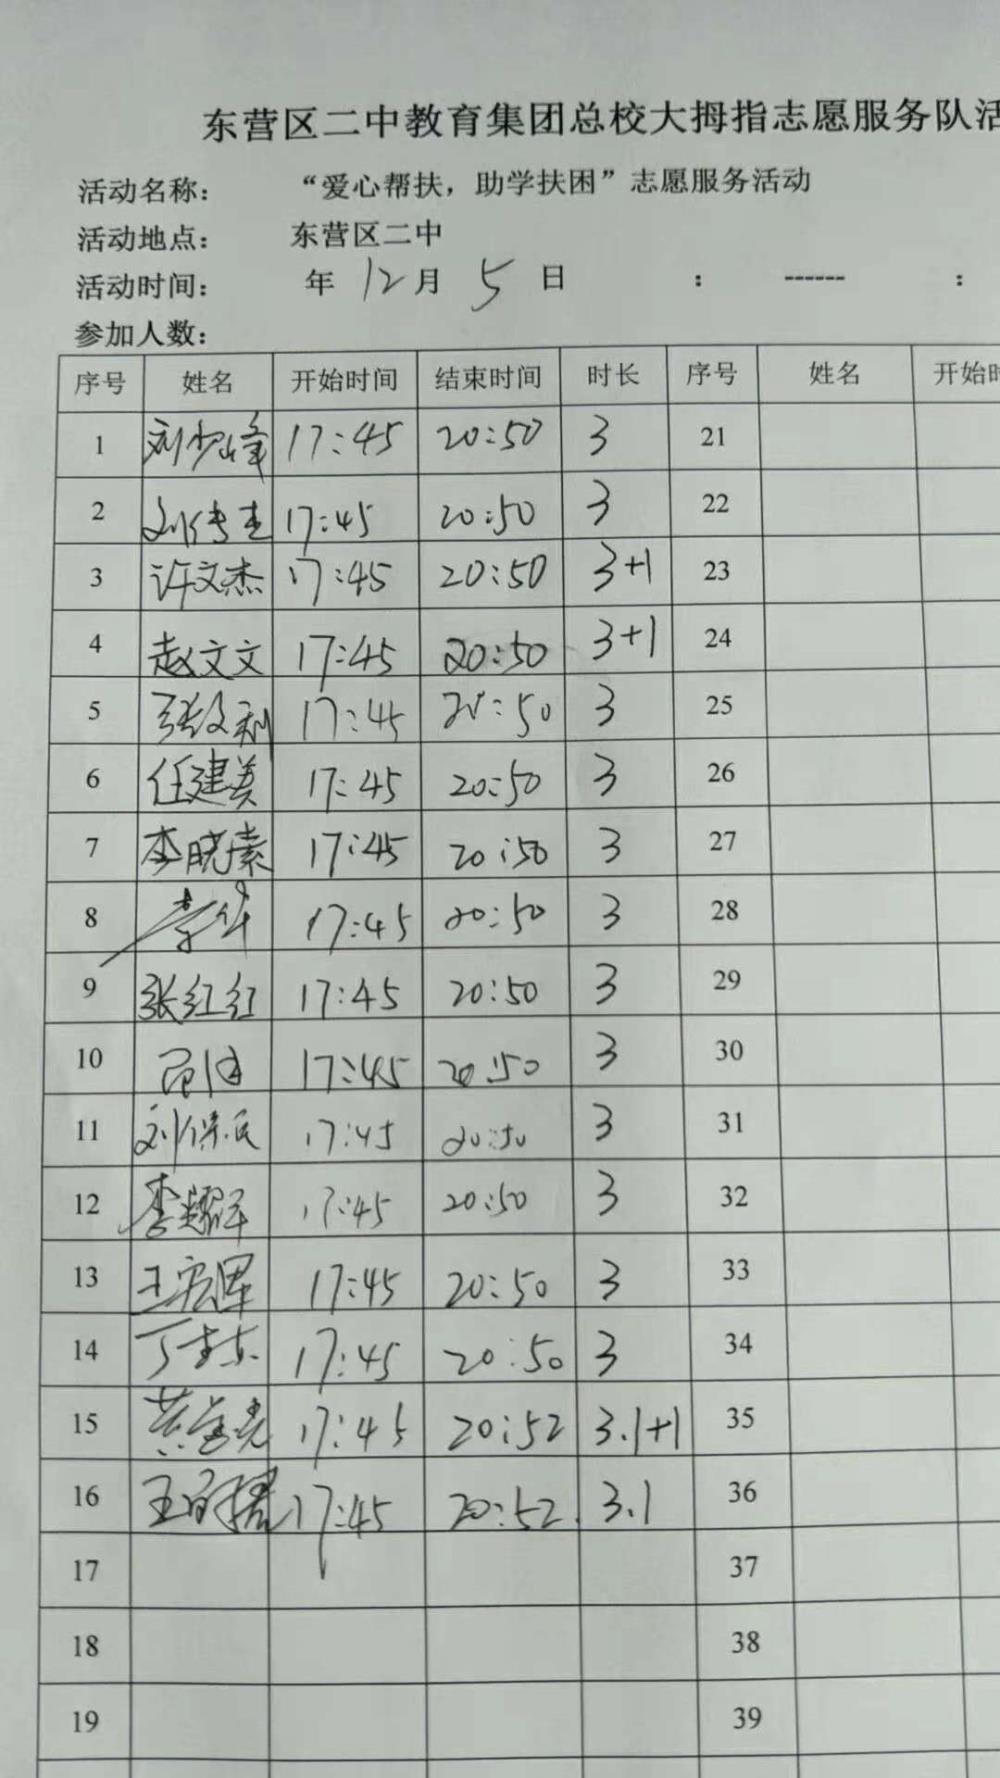 东营区二中教育集团总校大拇指志愿服务队活
活动名称： “爱心帮扶，助学扶困”志愿服务活动
活动地点： 东营区二中
活动时间： 年 12月 5 日 : ------ :
参加人数：
序号 姓名 开始时间 结束时间 时长 序号 姓名 开始时
1 刘少峰 17:45 20:50 3 21
2 刘传圭 17:45 20:50 3 22
3 许文杰 17:45 20:50 3+1 23
4 赵文文 17:45 20:50 3+1 24
5 张文利 17:45 20:50 3 25
6 任建美 17:45 20:50 3 26
7 李晓素 17:45 20:50 3 27
8 李华 17:45 20:50 3 28
9 张红红 17:45 20:50 3 29
10 17:45 20:50 3 30
11 刘保民 17:45 20:50 3 31
12 李耀军 17:45 20:50 3 32
13 王宏军 17:45 20:50 3 33
14 17:45 20:50 3 34
15 17:45 20:52 3.1+1 35
16 17:45 20:52. 3.1 36
17 37
18 38
19 39